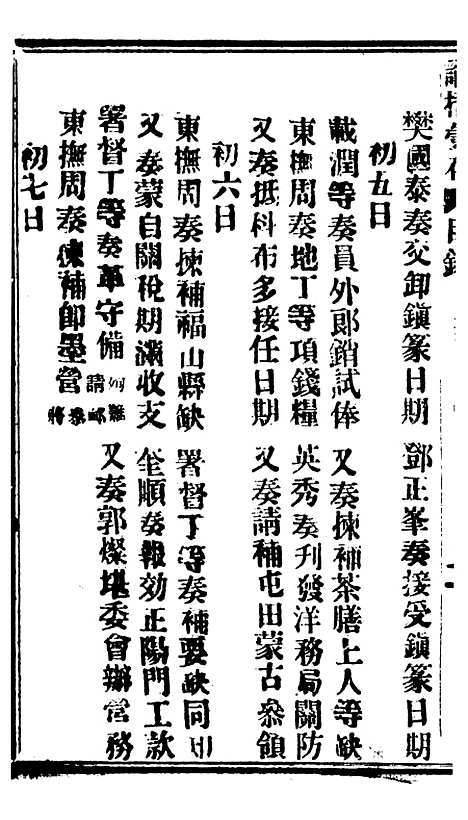 樊國泰奏交卸鎮篆日期　鄧正峯奏接受鎮篆日期
初五日
載潤等奏員外郎銷試俸　又奏揀補茶膳上人等缺
東撫周奏地丁等項錢糧　英秀奏刋發洋務局關防
又奏抵科布多接任日期　又奏請補屯田蒙古叅領
初六日
東撫周奏揀補福山縣缺　署督丁等奏補要缺同
又奏蒙自關稅期滿收支　奎順奏報効正陽門工款
署督丁等奏革守備　請　又奏郭燦堪委會辦營務
東撫周奏揀補卽墨營叅將
初七日